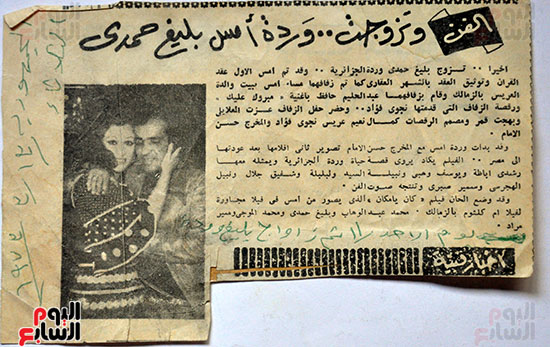 الفن
وتزوجت .. وردة أمس بليغ حمدى
اخيرا .. تزوج بليغ حمدى وردة الجزائرية .. وقد تم امس الاول عقد
القران وتوثيق العقد بالشهر العقارى كما تم زفافهما مساء امس ببيت والدة
العريس بالزمالك وقام بزفافهما عبد الحليم حافظ باغنية « مبروك عليك »
ورقصة الزفاف التى قدمتها نجوى فؤاد .. وحضر حفل الزفاف عزت العلايلى
وبهجت قمر ومصمم الرقصات كمال نعيم عريس نجوى فؤاد والمخرج حسن
الامام .
وقد بدات وردة امس مع المخرج حسن الامام تصوير ثانى افلامها بعد عودتها
الى مصر .. الفيلم يكاد يروى قصة حياة وردة الجزائرية ويمثله معها
رشدى اباظة ويوسف وهبى ونبيلة السيد وليليلة وشفيق جلال ونبيل
الهجرسى وسمير صبرى وتنتجه صوت الفن .
وقد وضع الحان فيلم « كان يامكان » الذى يصور من امس فى فيلا مجاورة
لفيلا ام كلثوم بالزمالك . محمد عبد الوهاب وبليغ حمدى ومحمد الموجى ومنير
مراد .
يوم الاحد
زواج بليغ
اخبارية
الجمهورية
اليوم السابع
اليوم السابع